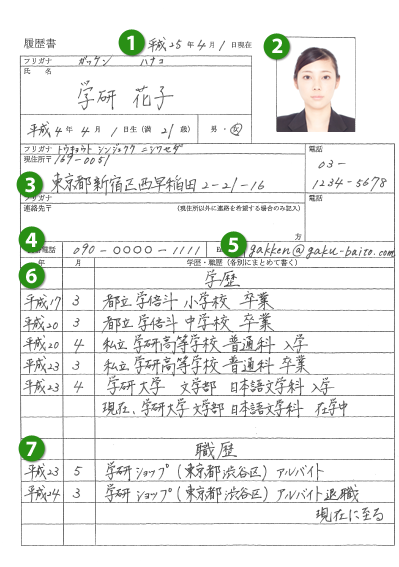 履歴書 1 平成 25 年 4 月 1 日現在 2
フリガナ ガッケン ハナコ
氏 名
学研 花子
平成 4 年 4 月 1 日生 (満 21 歳) 男・女
フリガナ トウキョウト シンジュクク ニシワセダ 電話
現住所〒 169-0051
03-
3 東京都新宿区西早稲田 2-21-16 1234-5678
フリガナ 電話
連絡先〒 (現住所以外に連絡を希望する場合のみ記入)
方
4 電話 090-0000-1111 5 gakken@gaku-baito.com
年 月 学歴・職歴 (各別にまとめて書く)
6 学歴
平成17 3 都立 学倍斗 小学校 卒業
平成20 3 都立 学倍斗 中学校 卒業
平成20 4 私立 学研高等学校 普通科 入学
平成23 3 私立 学研高等学校 普通科 卒業
平成23 4 学研大学 文学部 日本語文学科 入学
現在、学研大学 文学部 日本語文学科 在学中
7 職歴
平成23 5 学研ショップ (東京都渋谷区) アルバイト
平成24 3 学研ショップ (東京都渋谷区) アルバイト退職
現在に至る